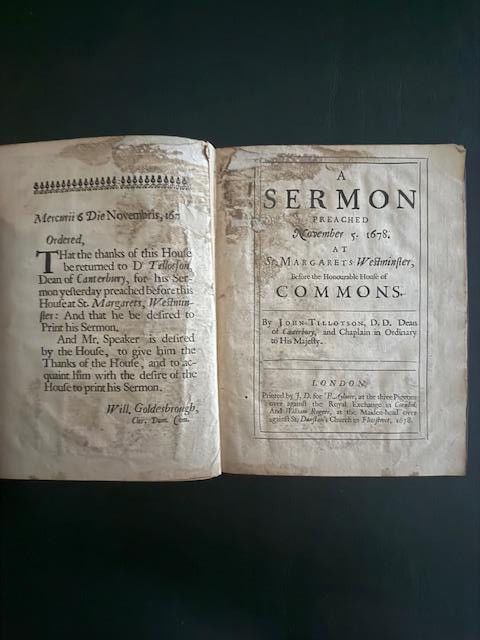 Mercurii 6 Die Novembris, 167
Ordered,
THat the thanks of this House
be returned to Dr Tillotson,
Dean of Canterbury, for his Ser-
mon yesterday preached before this
House at St. Margarets, Westmin-
ster: And that he be desired to
Print his Sermon.
And Mr. Speaker is desired
by the House, to give him the
Thanks of the House, and to ac-
quaint him with the desire of the
House to print his Sermon.
Will. Goldesbrough,
Cler. Dom. Com.
A
SERMON
PREACHED
November 5. 1678.
AT
St. MARGARETS Westminster,
Before the Honourable House of
COMMONS.
By JOHN TILLOTSON, D.D. Dean
of Canterbury, and Chaplain in Ordinary
to His Majesty.
LONDON,
Printed by J. D. for B. Aylmer, at the three Pigeons
over against the Royal Exchange in Cornhil.
And William Rogers, at the Maiden-head over
against St. Dunstan's Church in Fleetstreet, 1678.